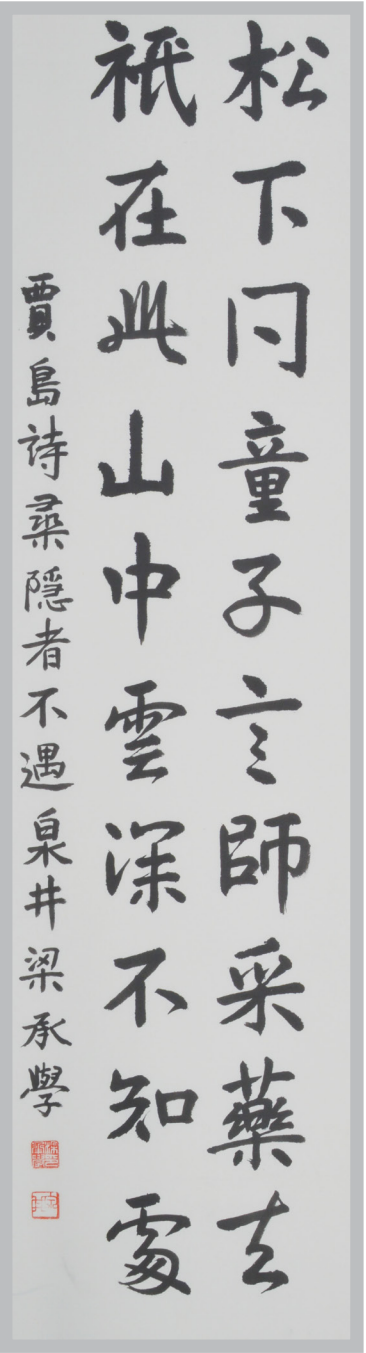 松下問童子言師采藥去
祇在此山中雲深不知處
賈島詩尋隱者不遇泉井梁承學